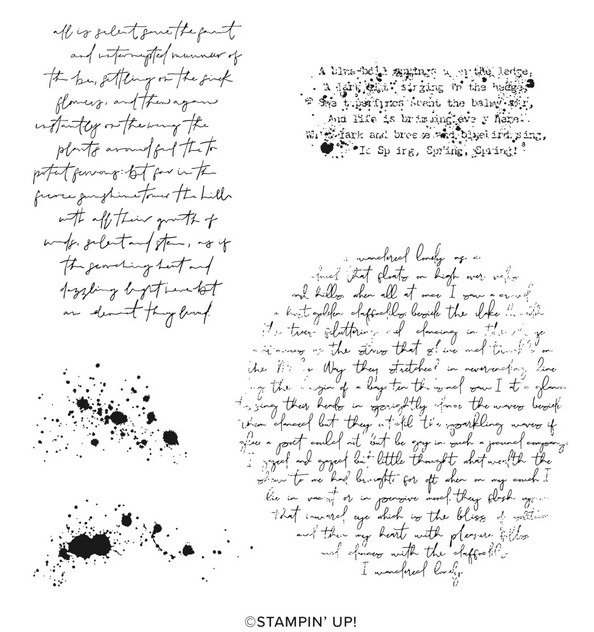 all is silent save the faint
and interrupted murmur of
the bee, settling on the sick
flowers, and then again
instantly on the wing the
plants around feel the to
potent fervour: but far in the
fierce sunshine tower the hills
with all their growth of
woods, silent and stern, as if
the scorching heat and
dazzling light were but
an element they loved
A blue-bell springs upon the ledge,
A lark sits singing in the hedge;
Sweet perfumes scent the balmy air,
And life is brimming every where.
What lark and breeze and bluebird sing,
Is Spring, Spring, Spring!
I wandered lonely as a
cloud that floats on high over vales
and hills when all at once I saw a crowd
a host golden daffodils beside the lake
the trees fluttering and dancing in the
as the stars that shine and twinkle on
the Milky Way they stretched in never-ending line
the margin of a bay ten thousand saw I at a glance
tossing their heads in sprightly dance the waves beside
them danced but they out did the sparkling waves in
glee a poet could not but be gay in such a jocund company
I gazed and gazed but little thought what wealth the
show to me had brought for oft when on my couch I
lie in vacant or in pensive mood they flash upon
that inward eye which is the bliss of solitude
and then my heart with pleasure fills
and dances with the daffodils
I wandered lonely
©STAMPIN' UP!